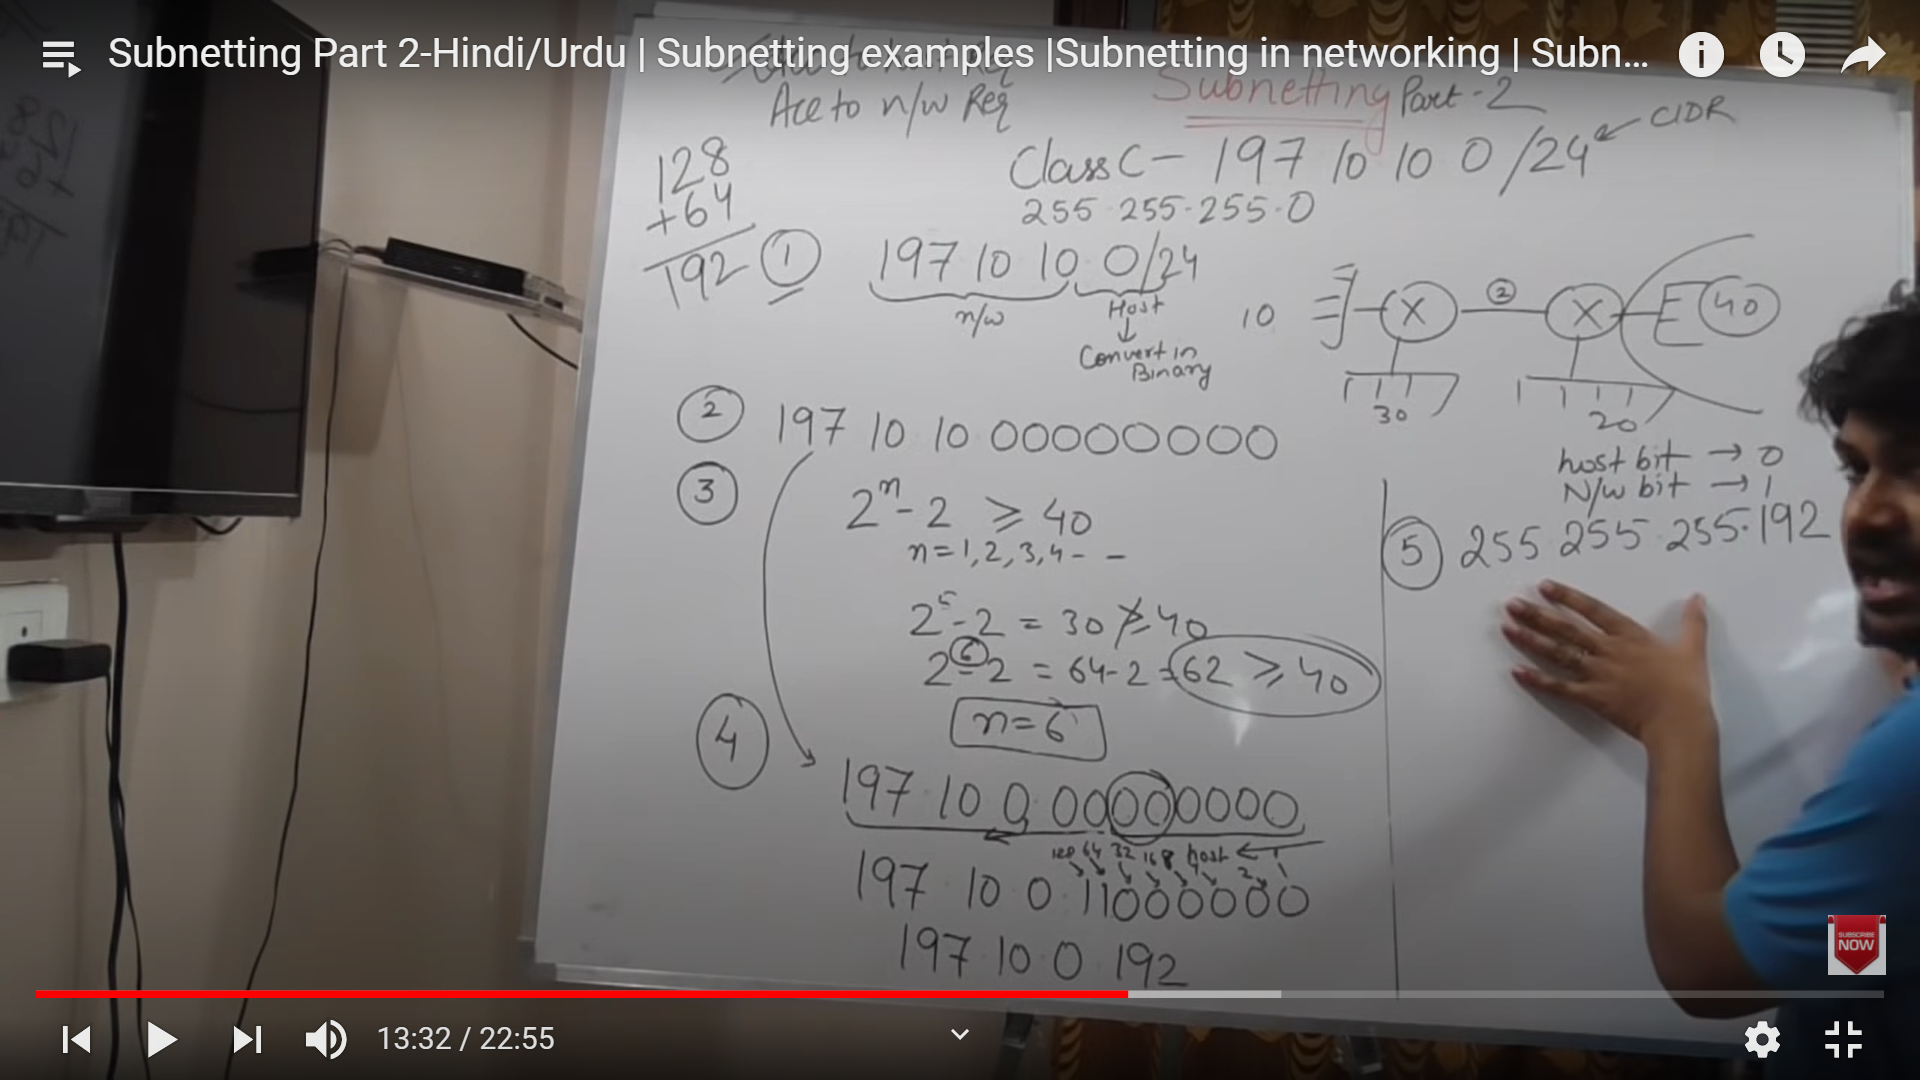 Subnetting Part 2-Hindi/Urdu | Subnetting examples |Subnetting in networking | Subn...
Acc to n/w Req
Subnetting Part-2
CIDR
Class C - 197 10 10 0 /24
255 255.255.0
128
+64
192
1
197 10 10 0/24
n/w
Host
Convert in
Binary
10
X
2
X
40
30
20
2
197 10 10 00000000
3
2ⁿ-2 ≥ 40
n=1,2,3,4- -
2⁵-2 = 30 ≱ 40
2⁶-2 = 64-2 =62 ≥ 40
n=6
4
197 10 0. 00000000
128 64 32 16 8 host 4 2 1
197 10 0 11000000
197 10 0 192
host bit → 0
N/w bit → 1
5 255 255 255.192
SUBSCRIBE
NOW
13:32 / 22:55